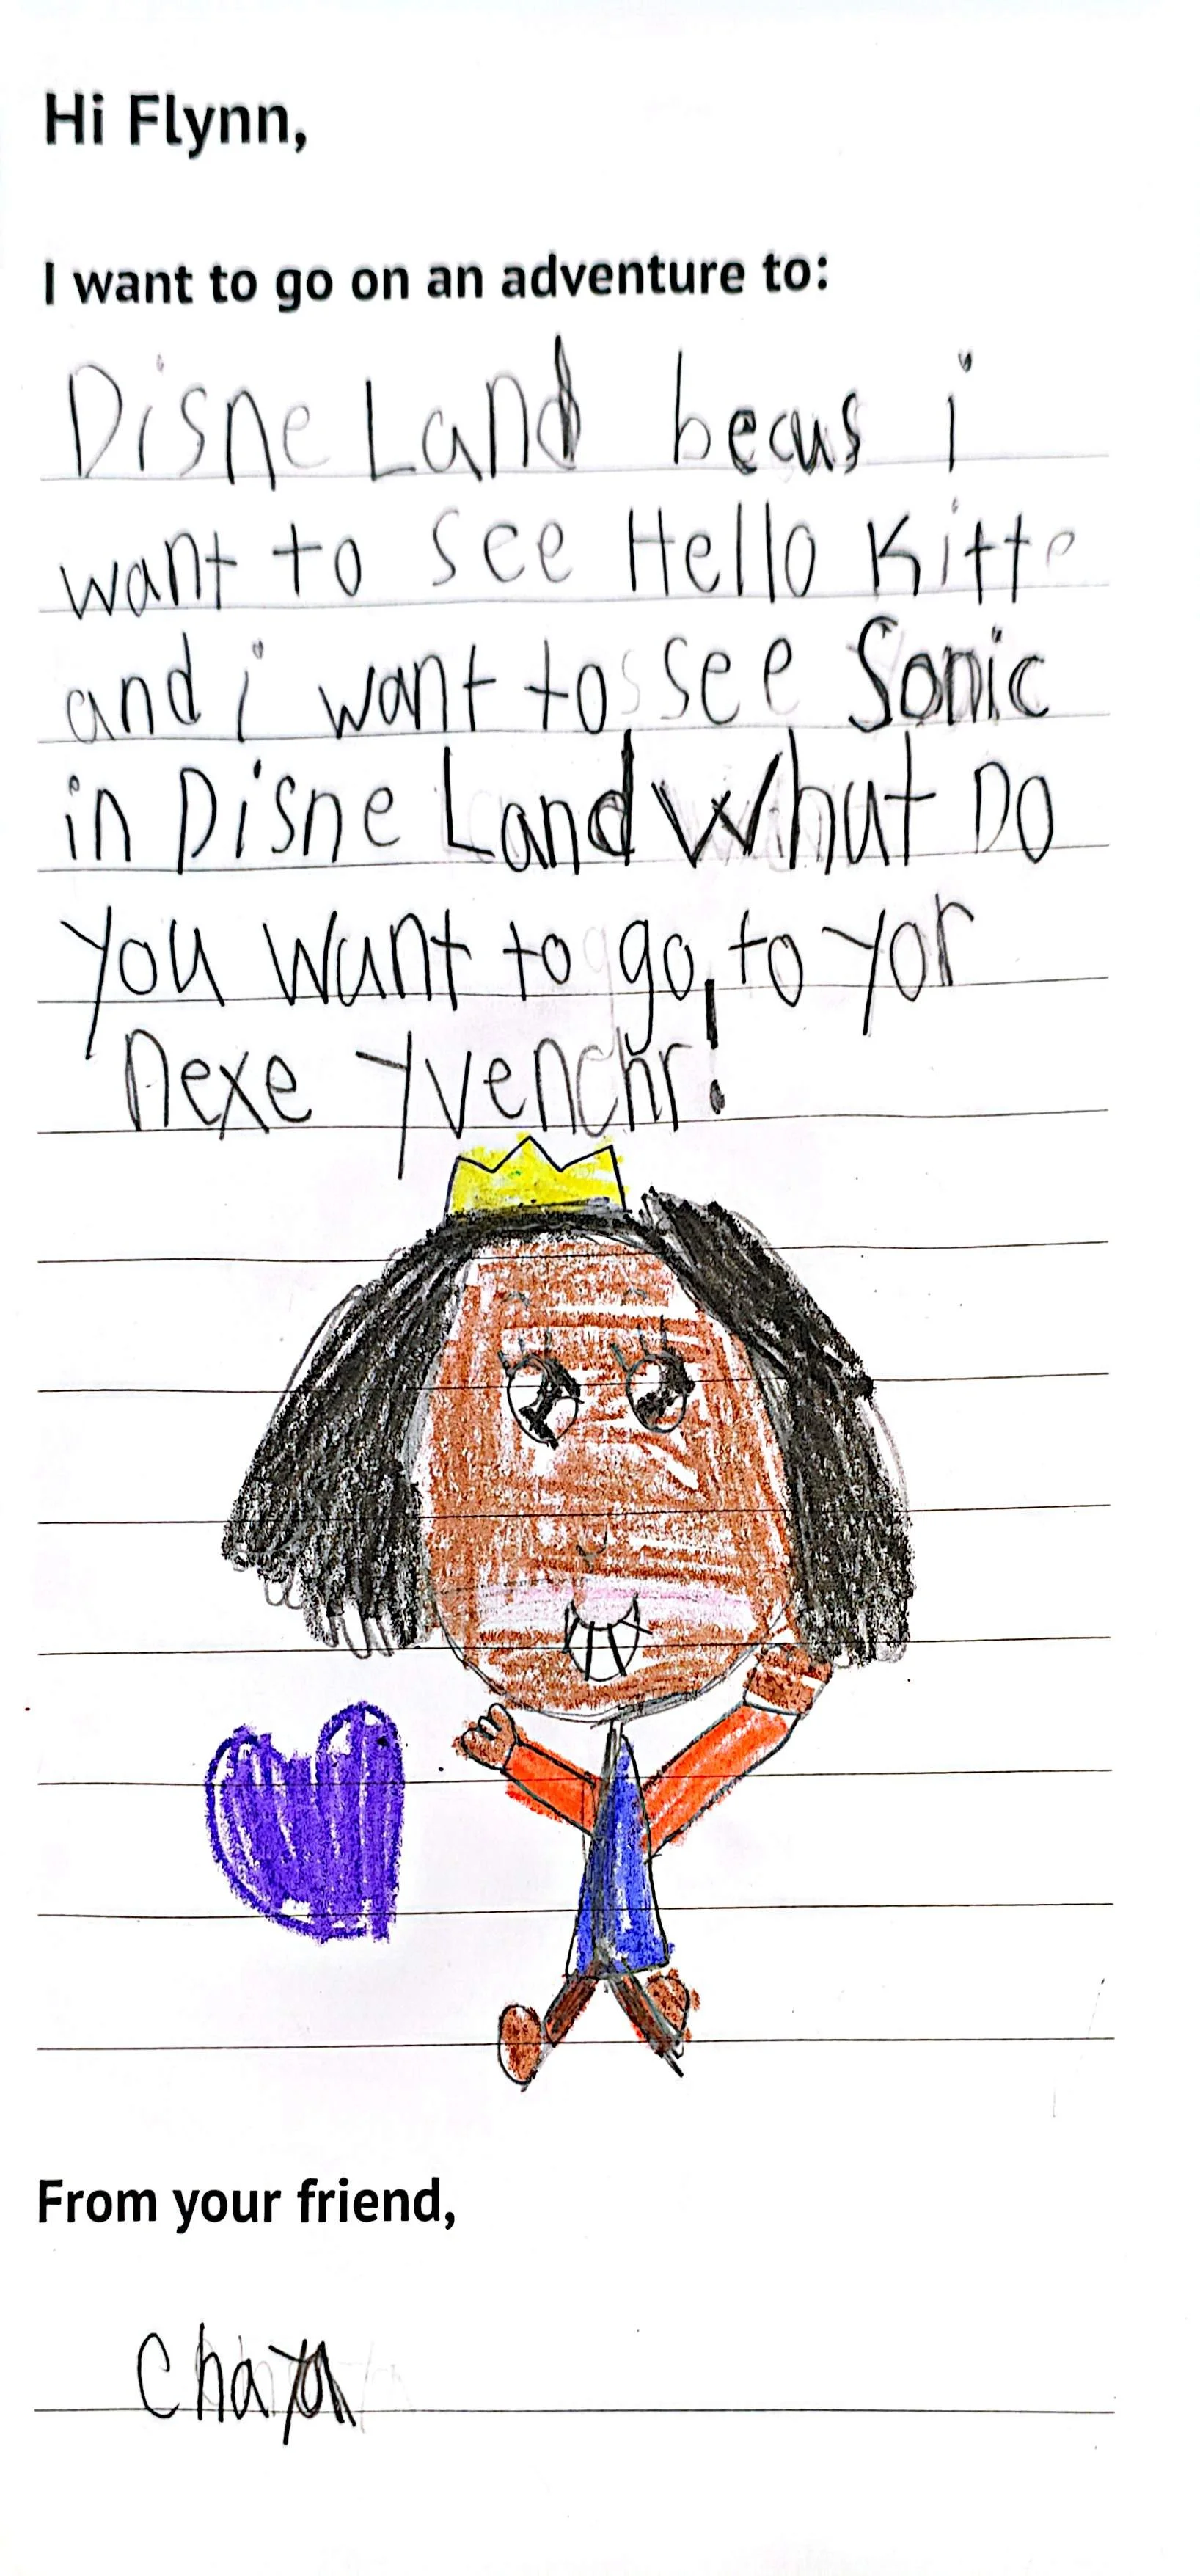 Hi Flynn,
I want to go on an adventure to:
Disne Land becus i
want to see Hello Kitte
and i want to see Sonic
in Disne Land Whut Do
you want to go, to yor
nexe yvenchr!
From your friend,
Chaya